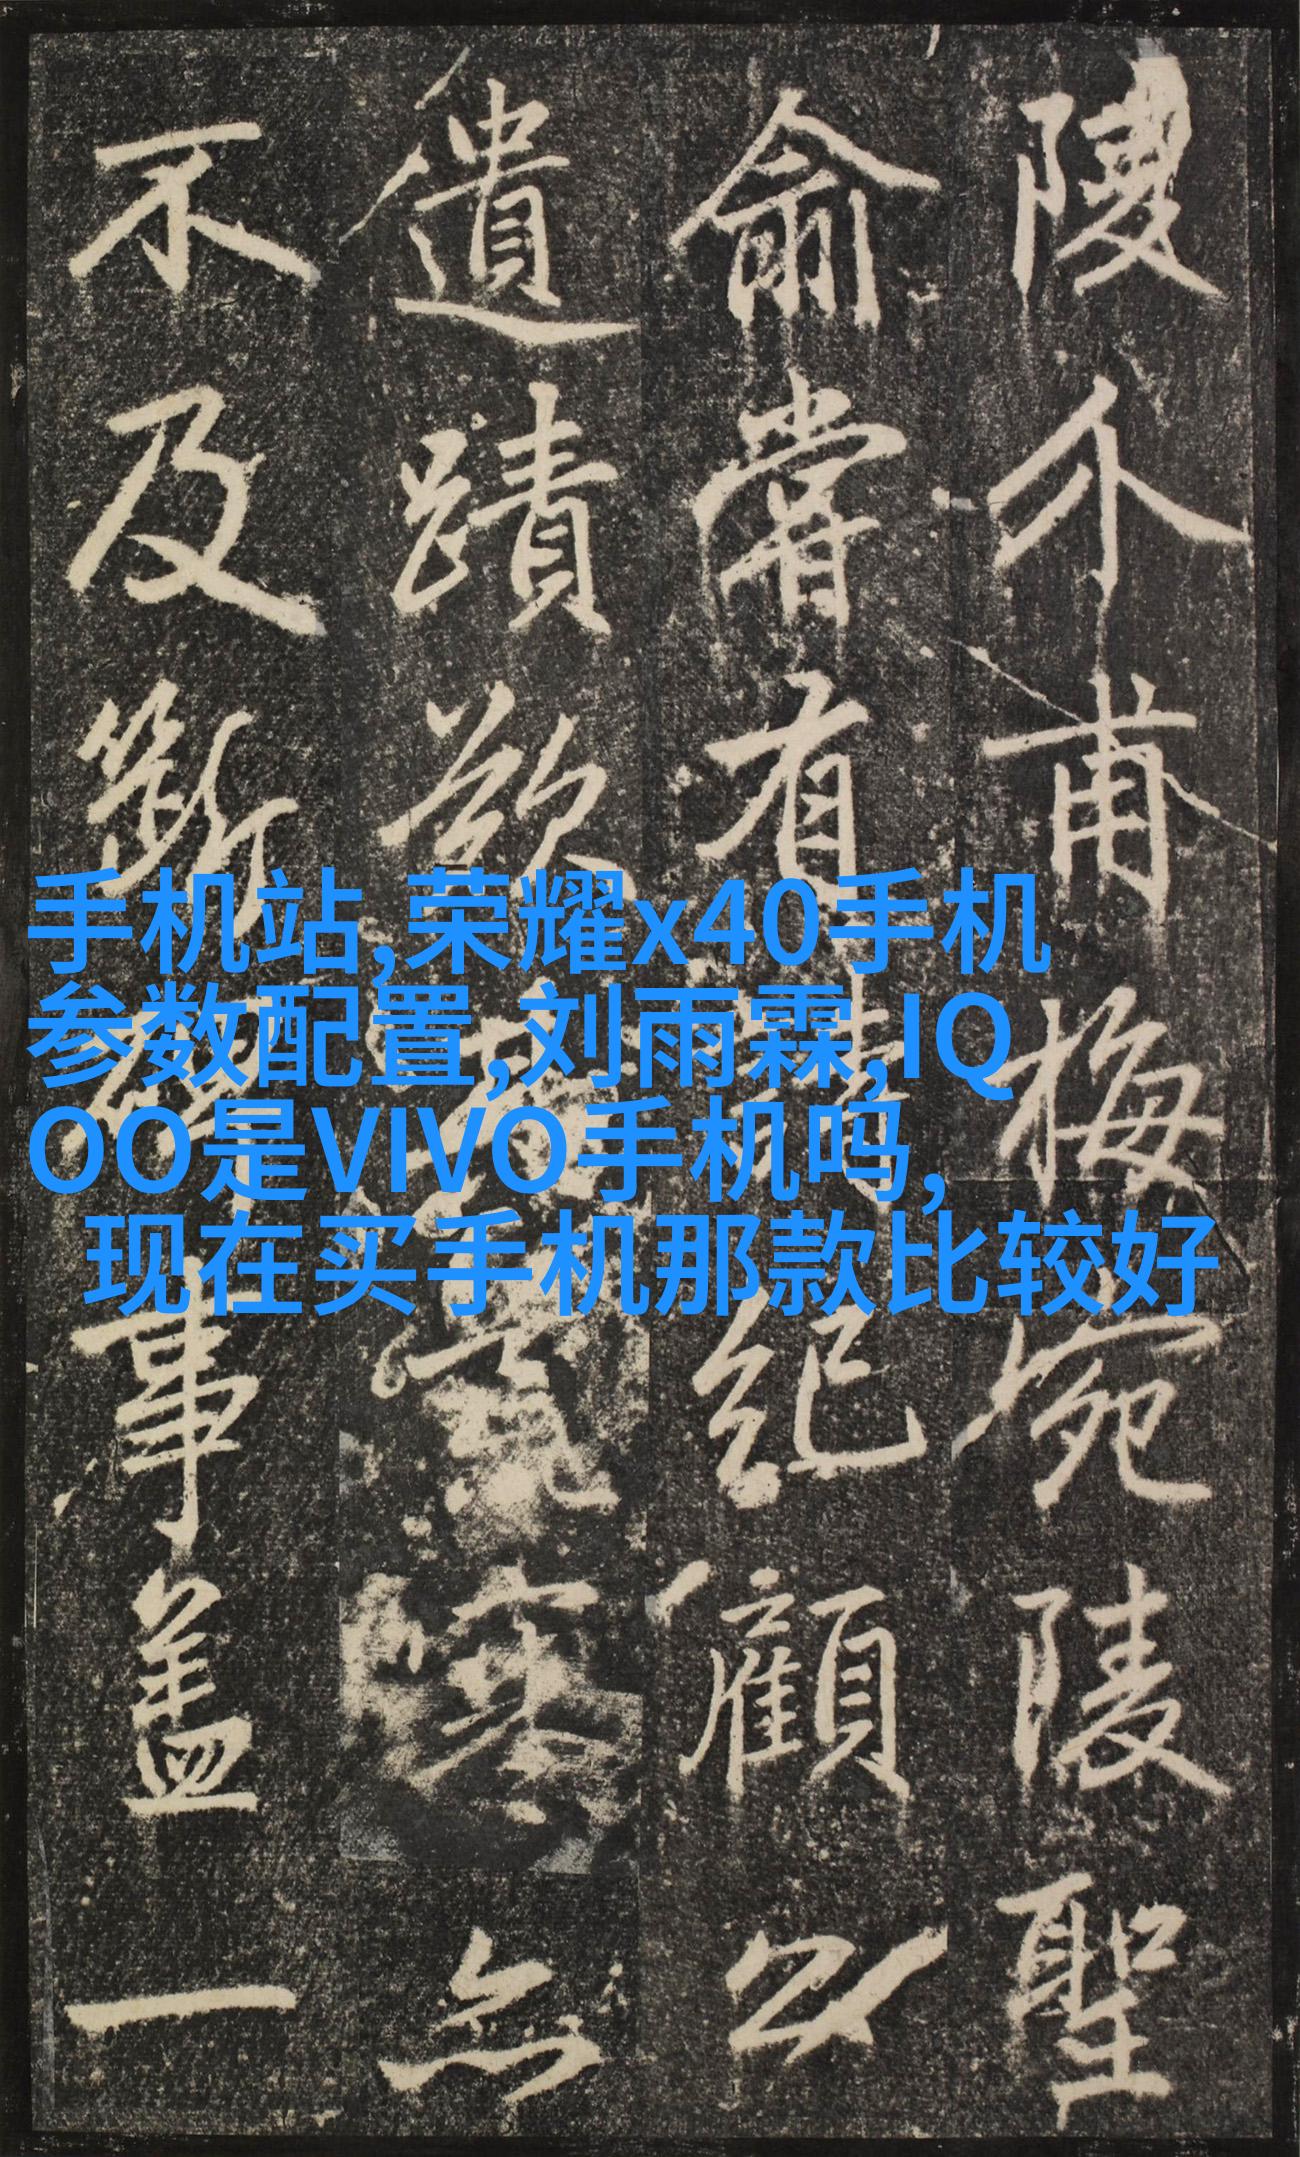 陵介甫梅宛陵聖
俞嘗有紀顧
遺蹟欲無
不及斷事蓋一
手机站,荣耀x40手机
参数配置,刘雨霖,IQ
OO是VIVO手机吗,
现在买手机那款比较好